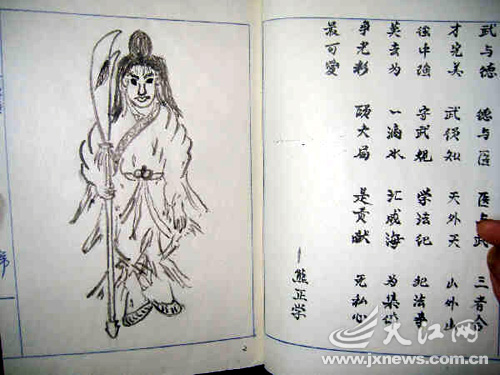 武与德 德与医 医与武 三者合
才完美 武须知 天外天 山外山
强中强 守武规 学法纪 犯法事
莫去为 一滴水 汇成海 为集体
争光彩 顾大局 是贡献 无私心
最可爱
—熊正学
2
大江网
www.jxnews.com.cn